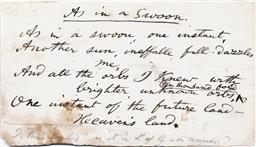 As in a Swoon.
As in a swoon, one instant,
Another sun, ineffable full-dazzles
me,
And all the orbs I knew with
brighter unknown orbs,
One instant of the future land –
Heaven's land.